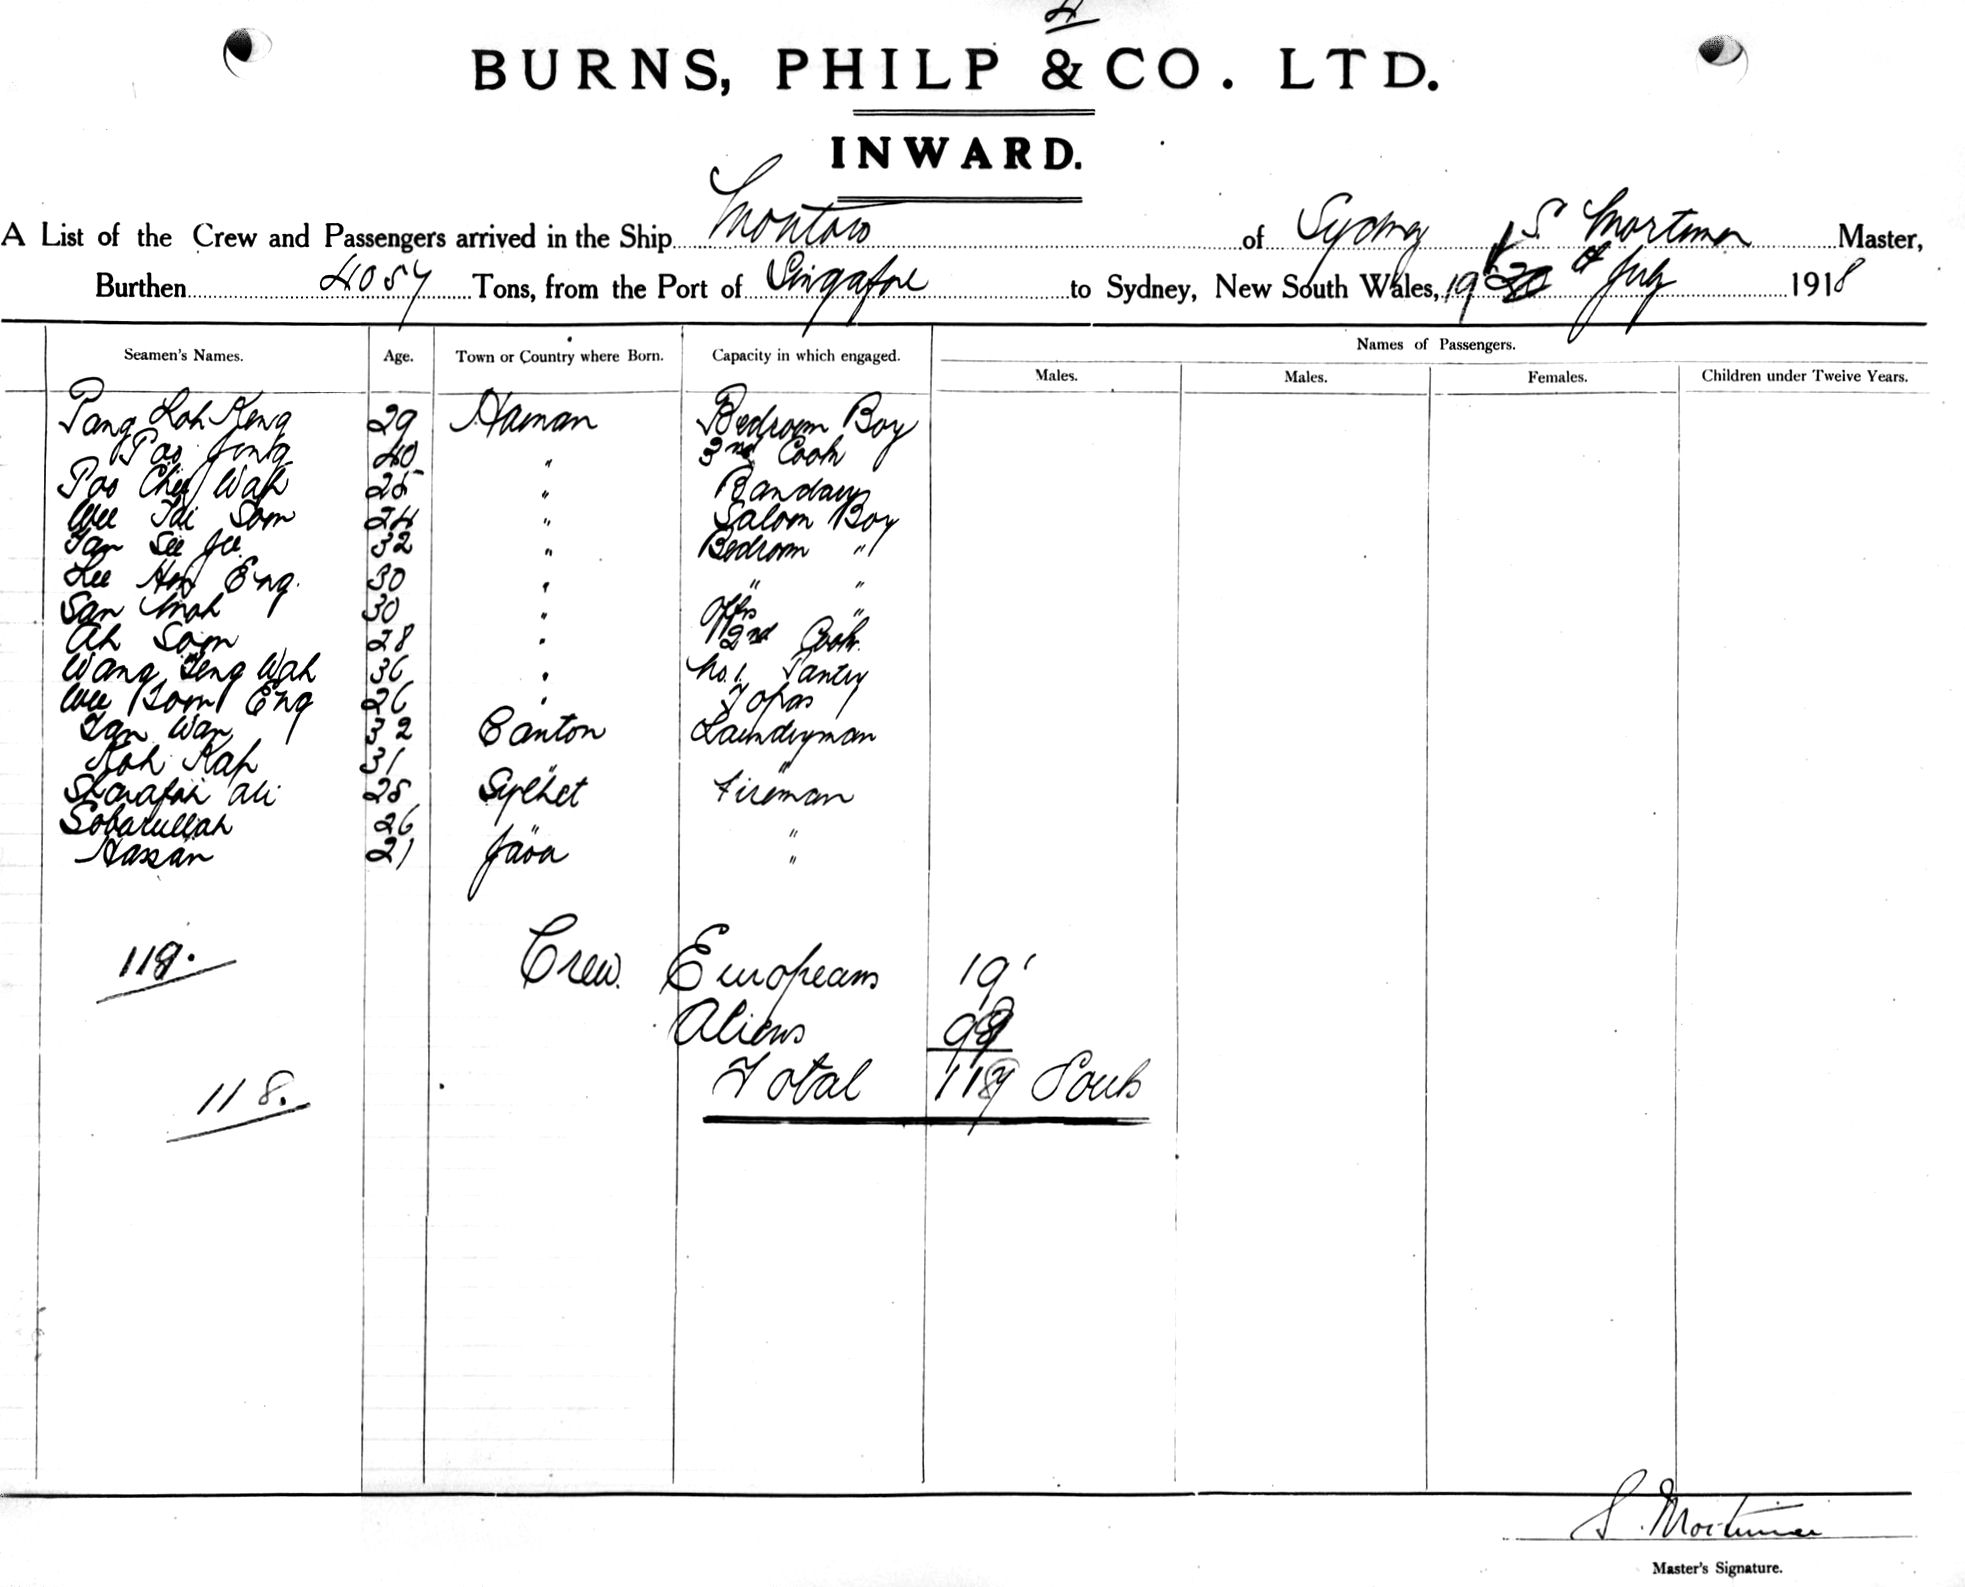 4
BURNS, PHILP & CO. LTD.
INWARD.
A List of the Crew and Passengers arrived in the Ship Montoro of Sydney S Mortimer Master,
Burthen 4057 Tons, from the Port of Singapore to Sydney, New South Wales, 19 of July 1918
Seamen's Names. Age. Town or Country where Born. Capacity in which engaged. Names of Passengers.
Males. Males. Females. Children under Twelve Years.
Pang Loh Keng 29 Hainan Bedroom Boy
Poo 40 " 3rd Cook
Poo Chee Wah 25 " Bandary
Wee Tai Som 24 " Saloon Boy
Tan See Jee 32 " Bedroom "
Lee Eng. 30 " " "
San Moh 30 " Offrs "
Ah Som 28 " 2nd Cook
Wang Teng Wah 36 " No. 1. Pantry
Wee Boon Eng 26 " Topas
Tan Wan 32 Canton Laundryman
Koh Kap 31 " "
Sharafah Ali 25 Sylhet Fireman
Sobarullah 26 " "
Hassan 21 Java "
119. Crew. Europeans 19
Aliens
118. Total Souls
S. Mortimer
Master's Signature.